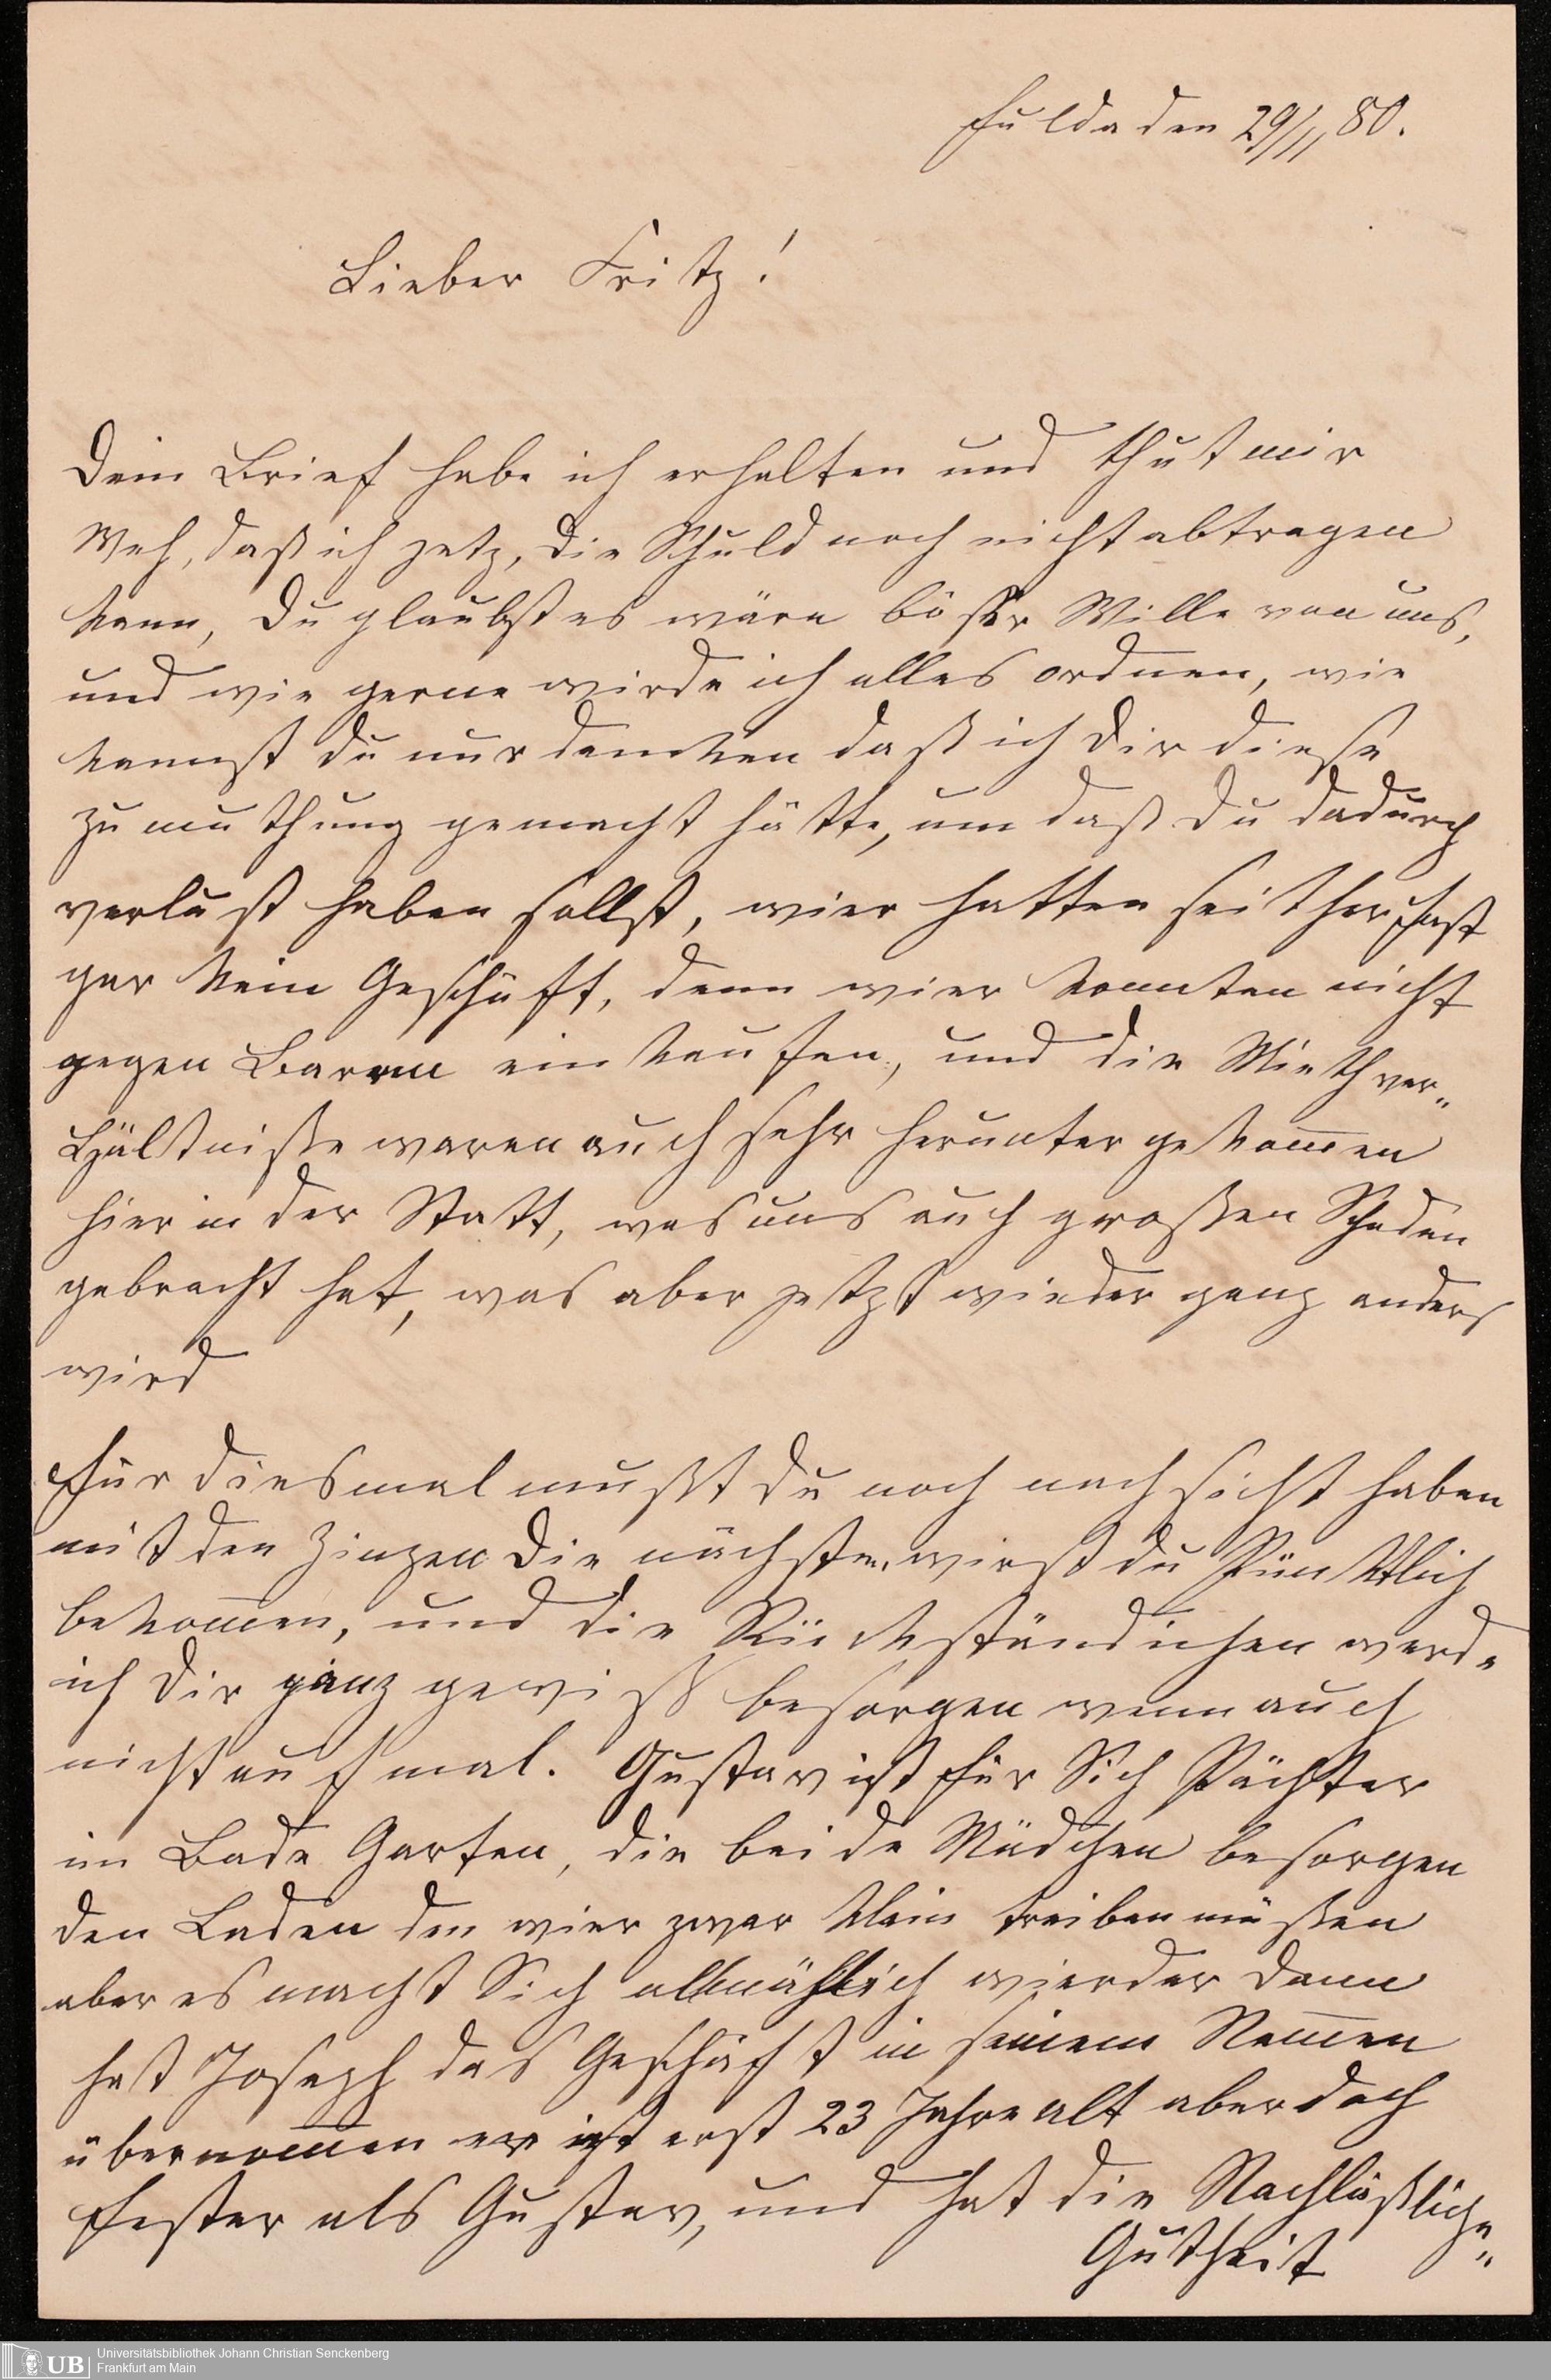 Fulda den 29/11 80.
Lieber Fritz!
Dein Brief habe ich erhalten und thut mir
Weh, daß ich jetz, die Schuld noch nicht abtragen
kann, Du glaubst es wäre böser Wille von uns,
und wie gerne wirde ich alles ordnen, wie
kannst Du nur denken daß ich Dir diese
zumuthung gemacht hätte, um daß Du dadurch
verlust haben sollst, wier hatten seither fast
gar kein Geschäft, denn wier konnten nicht
gegen Baren einkaufen, und die Miethver„
hältniße waren auch sehr herunter gekom̅en
hier in der Statt, was uns auch großen Schaden
gebracht hat, was aber jetzt wieder ganz anders
wird
für diesmal mußt Du noch nachsicht haben
mit den Zinzen die nächsten wirst du Pünktlich
bekom̅en, und die Rückständichen werde
ich Dir ganz gewiß besorgen wenn auch
nicht auf mal. Gustav ist für Sich Pächter
im Bade Garten, die beide Mädchen besorgen
den Laden den wier zwar klein treiben müßen
aber es macht Sich allmählich wierder dann
hat Joseph das Geschäft in seinem Namen
übernom̅en er ist erst 23 Jahre alt aber doch
fester als Gustav, und hat die Nachläßliche„
Gutheit
UB
Universitätsbibliothek Johann Christian Senckenberg
Frankfurt am Main